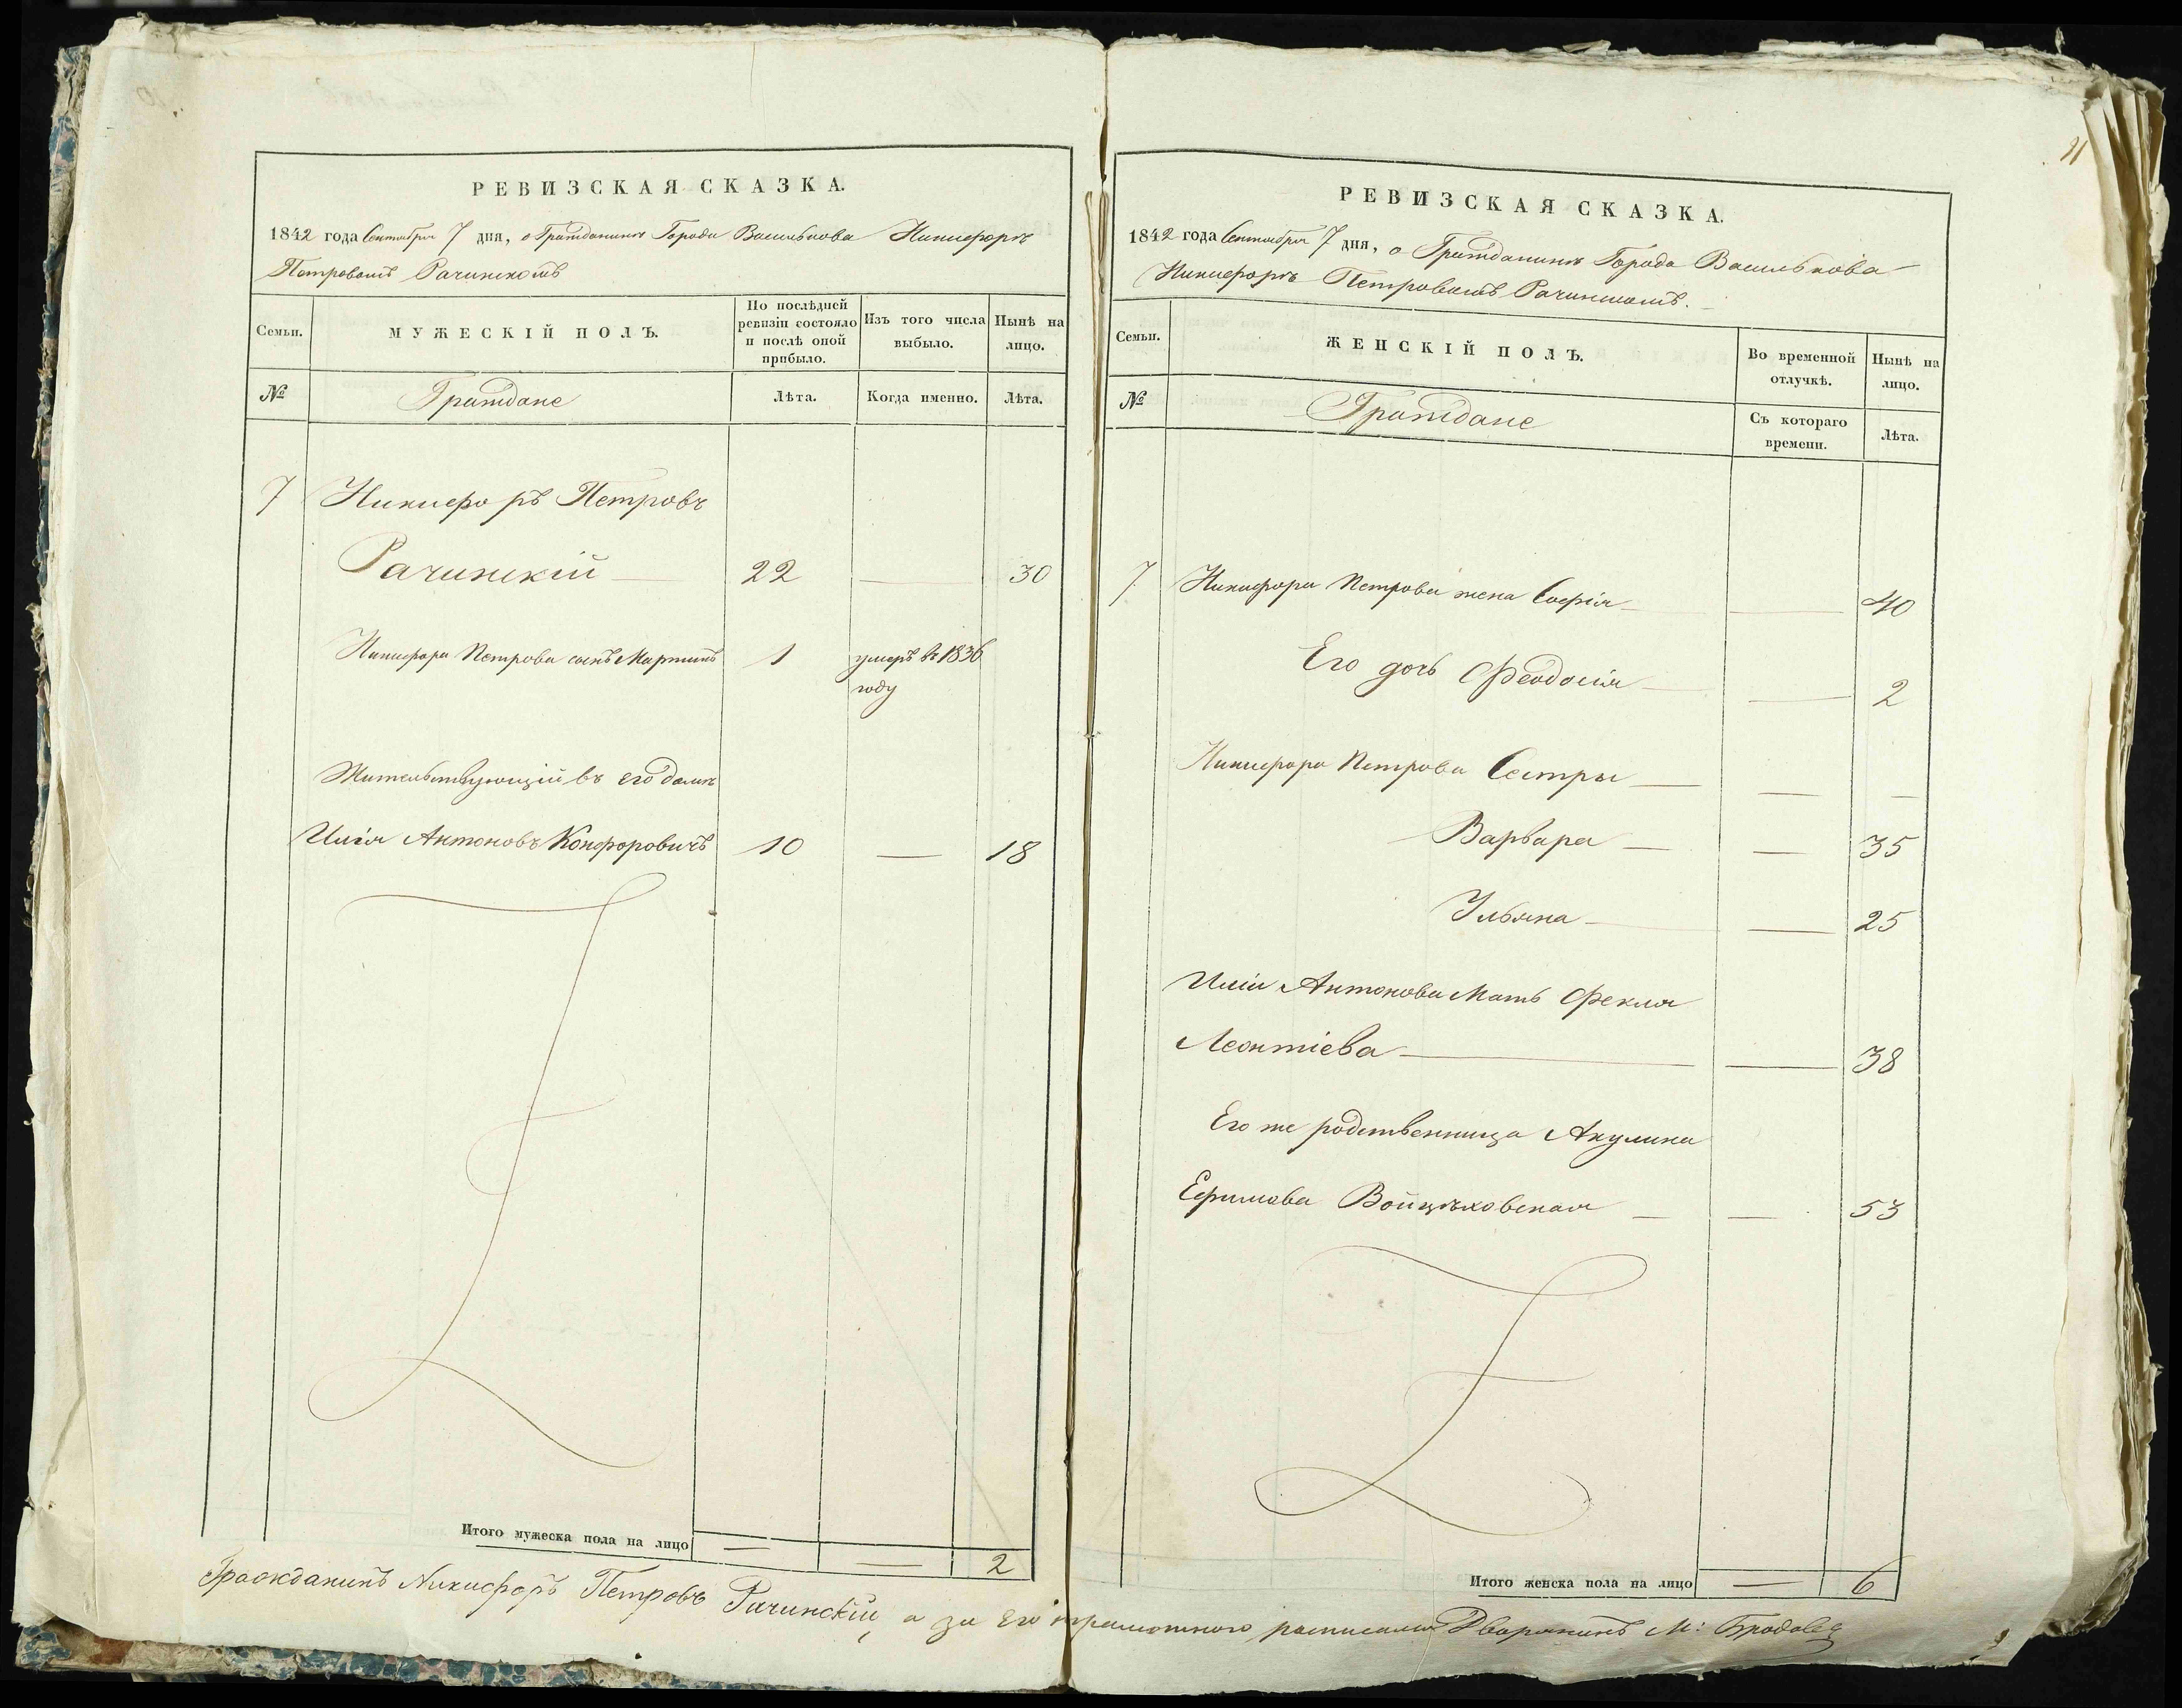 РЕВИЗСКАЯ СКАЗКА.
1842 года Сентября 7 дня, о Гражданинѣ Города Василькова Никифорѣ
Петровомъ Рачинскомъ
Семьи.
МУЖЕСКІЙ ПОЛЪ.
По послѣдней
ревизіи состояло
и послѣ оной
прибыло.
Изъ того числа
выбыло.
Нынѣ на
лицо.
№
Граждане
Лѣта.
Когда именно.
Лѣта.
7 Никифоръ Петровъ
Рачинскій — 22 — 30
Никифора Петрова сынъ Мартинъ 1 умеръ въ 1836
году
Жительствующій въ его домѣ
Илія Антоновъ Конфоровичъ 10 — 18
Итого мужеска пола на лицо — — 2
РЕВИЗСКАЯ СКАЗКА.
1842 года Сентября 7 дня, о Гражданинѣ Города Василькова
Никифорѣ Петровомъ Рачинскомъ.
Семьи.
ЖЕНСКІЙ ПОЛЪ.
Во временной
отлучкѣ.
Нынѣ на
лицо.
№
Граждане
Съ котораго
времени.
Лѣта.
7 Никифора Петрова жена Софія — — 40
Его дочь Феодосія — — 2
Никифора Петрова Сестры — — —
Варвара — — 35
Ульяна — — 25
Иліи Антонова Мать Фекла
Леонтіева — — 38
Его же родственница Акулина
Ефимова Войцѣховская — — 53
Итого женска пола на лицо — 6
Гражданинъ Никифоръ Петровъ Рачинскій, а за его неграмотного росписался Дворянинъ М: